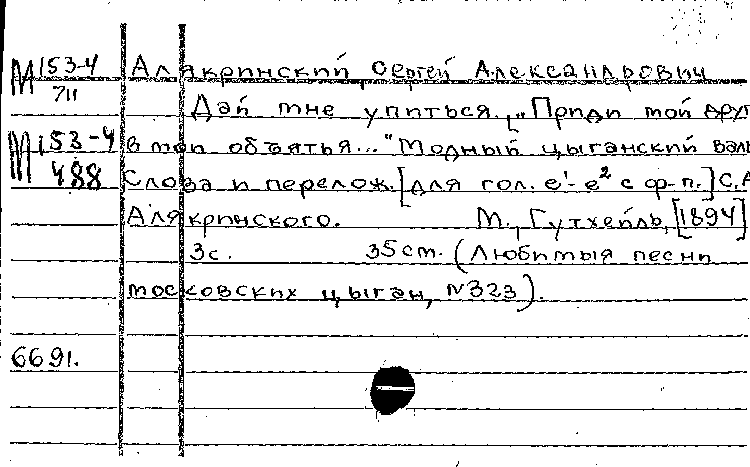 М 153-4 Алякринский Сергей Александрович
711 Дай мне упиться. „Приди мой друг
М 153-4 в мои объятья..." Модный цыганский
488 Слова и перелож. [для гол. e¹-e² с ф-п.] С.А
Алякринского. М., Гутхейль, [1894]
3с. 35 cm. (Любимыя песни
московских цыган, №323).
6691.